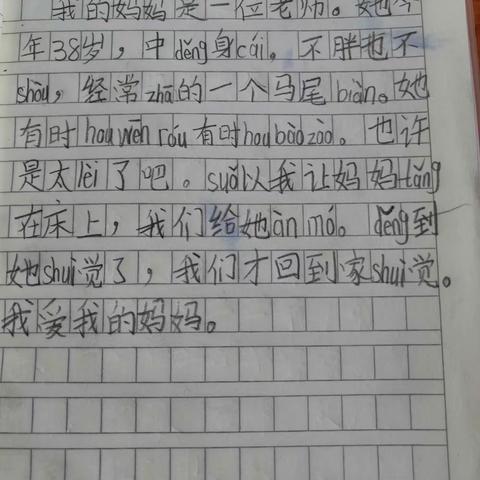 我的妈妈是一位老师。她今
年38岁，中děng身cái，不胖也不
shòu，经常zhā的一个马尾biàn。她
有时hou wēn róu有时hou bào zào。也许
是太lèi了吧。suǒ以我让妈妈tǎng
在床上，我们给她àn mó。děng到
她shuì觉了，我们才回到家shuì觉。
我爱我的妈妈。